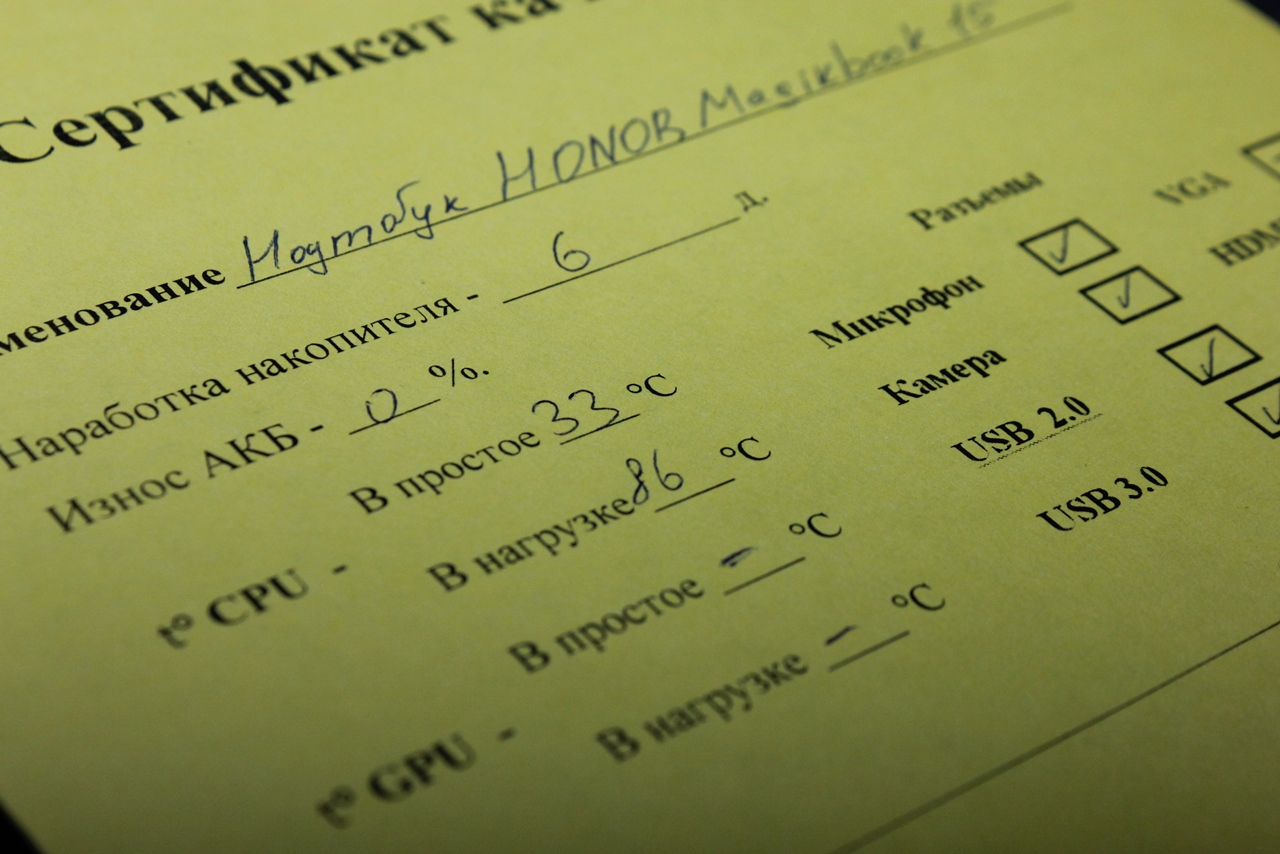 Сертификат ка
менование Ноутбук HONOR Magikbook 15
Наработка накопителя - 6 д.
Износ АКБ - 0 %.
t° CPU - В простое 33 °C
В нагрузке 86 °C
t° GPU - В простое - °C
В нагрузке - °C
Разъемы
Микрофон ✓
Камера ✓
USB 2.0 ✓
USB 3.0 ✓
VGA
HDM